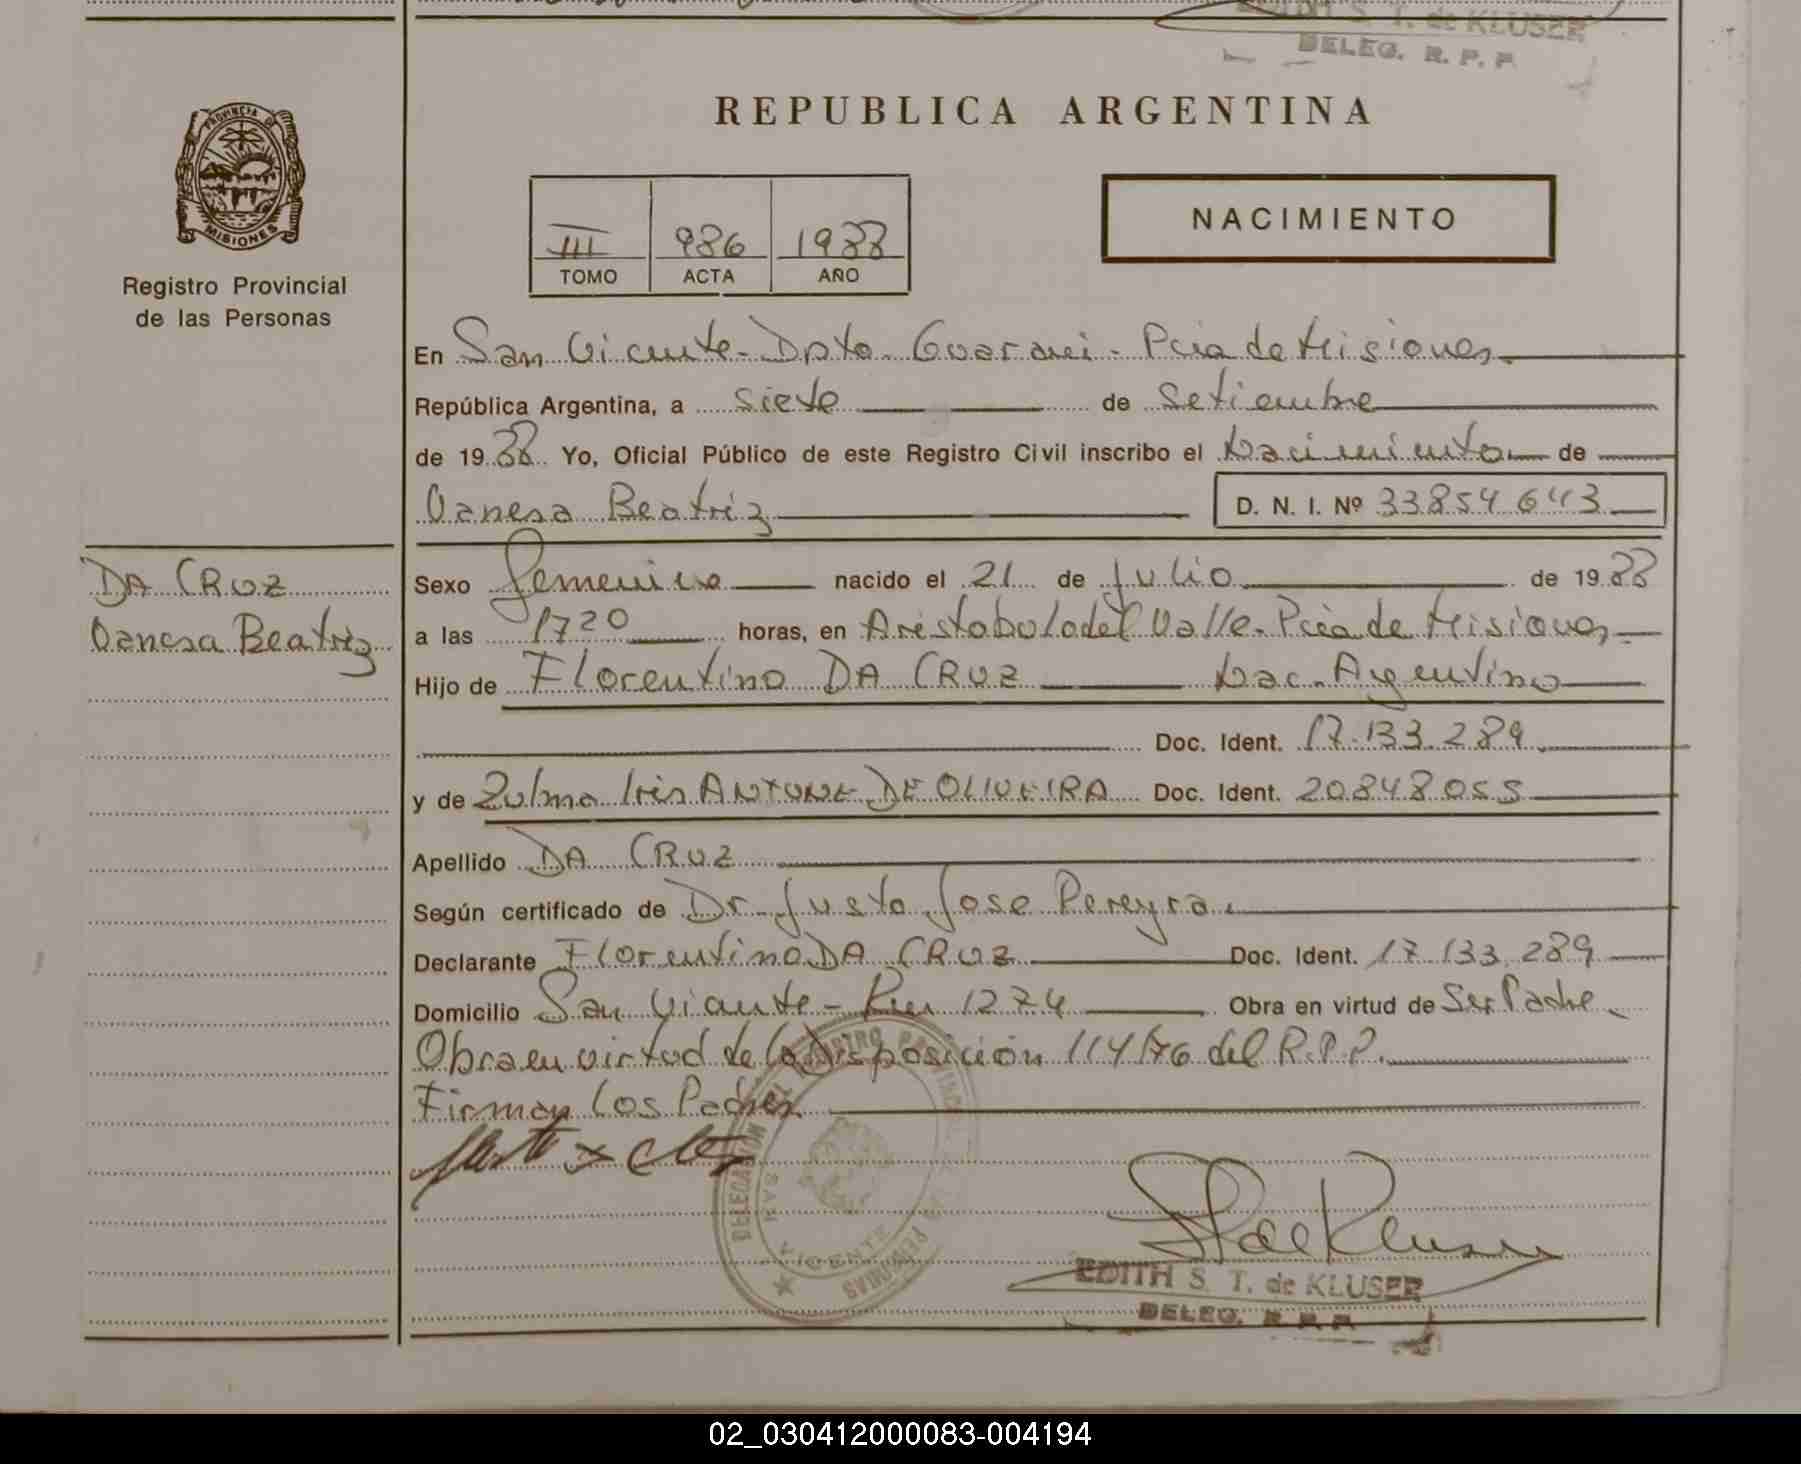 EDITH S. T. de KLUSER
DELEG. R. P. P.
PROVINCIA DE
MISIONES
Registro Provincial
de las Personas
REPUBLICA ARGENTINA
III 986 1988
TOMO ACTA AÑO
NACIMIENTO
En San Vicente - Dpto. Guarani - Pcia de Misiones
República Argentina, a siete de Setiembre
de 1988 Yo, Oficial Público de este Registro Civil inscribo el Nacimiento de
Vanesa Beatriz D. N. I. Nº 33854643
DA CRUZ
Vanesa Beatriz
Sexo femenino nacido el 21 de julio de 1988
a las 1720 horas, en Aristobulo del Valle - Pcia de Misiones
Hijo de Florentino DA CRUZ Nac. Argentino
Doc. Ident. 17.133.289
y de Zulma Iris ANTUNE DE OLIVEIRA Doc. Ident. 20848055
Apellido DA CRUZ
Según certificado de Dr. Justo Jose Pereyra.
Declarante Florentino DA CRUZ Doc. Ident. 17.133.289
Domicilio San Vicente - Km 1274 Obra en virtud de Ser Padre
Obra en virtud de la Disposición 114/76 del R.P.P.
Firman Los Padres
DELEGACION DEL REGISTRO PROVINCIAL DE LAS PERSONAS
SAN VICENTE
EDITH S. T. de KLUSER
DELEG. R. P. P.
02_030412000083-004194